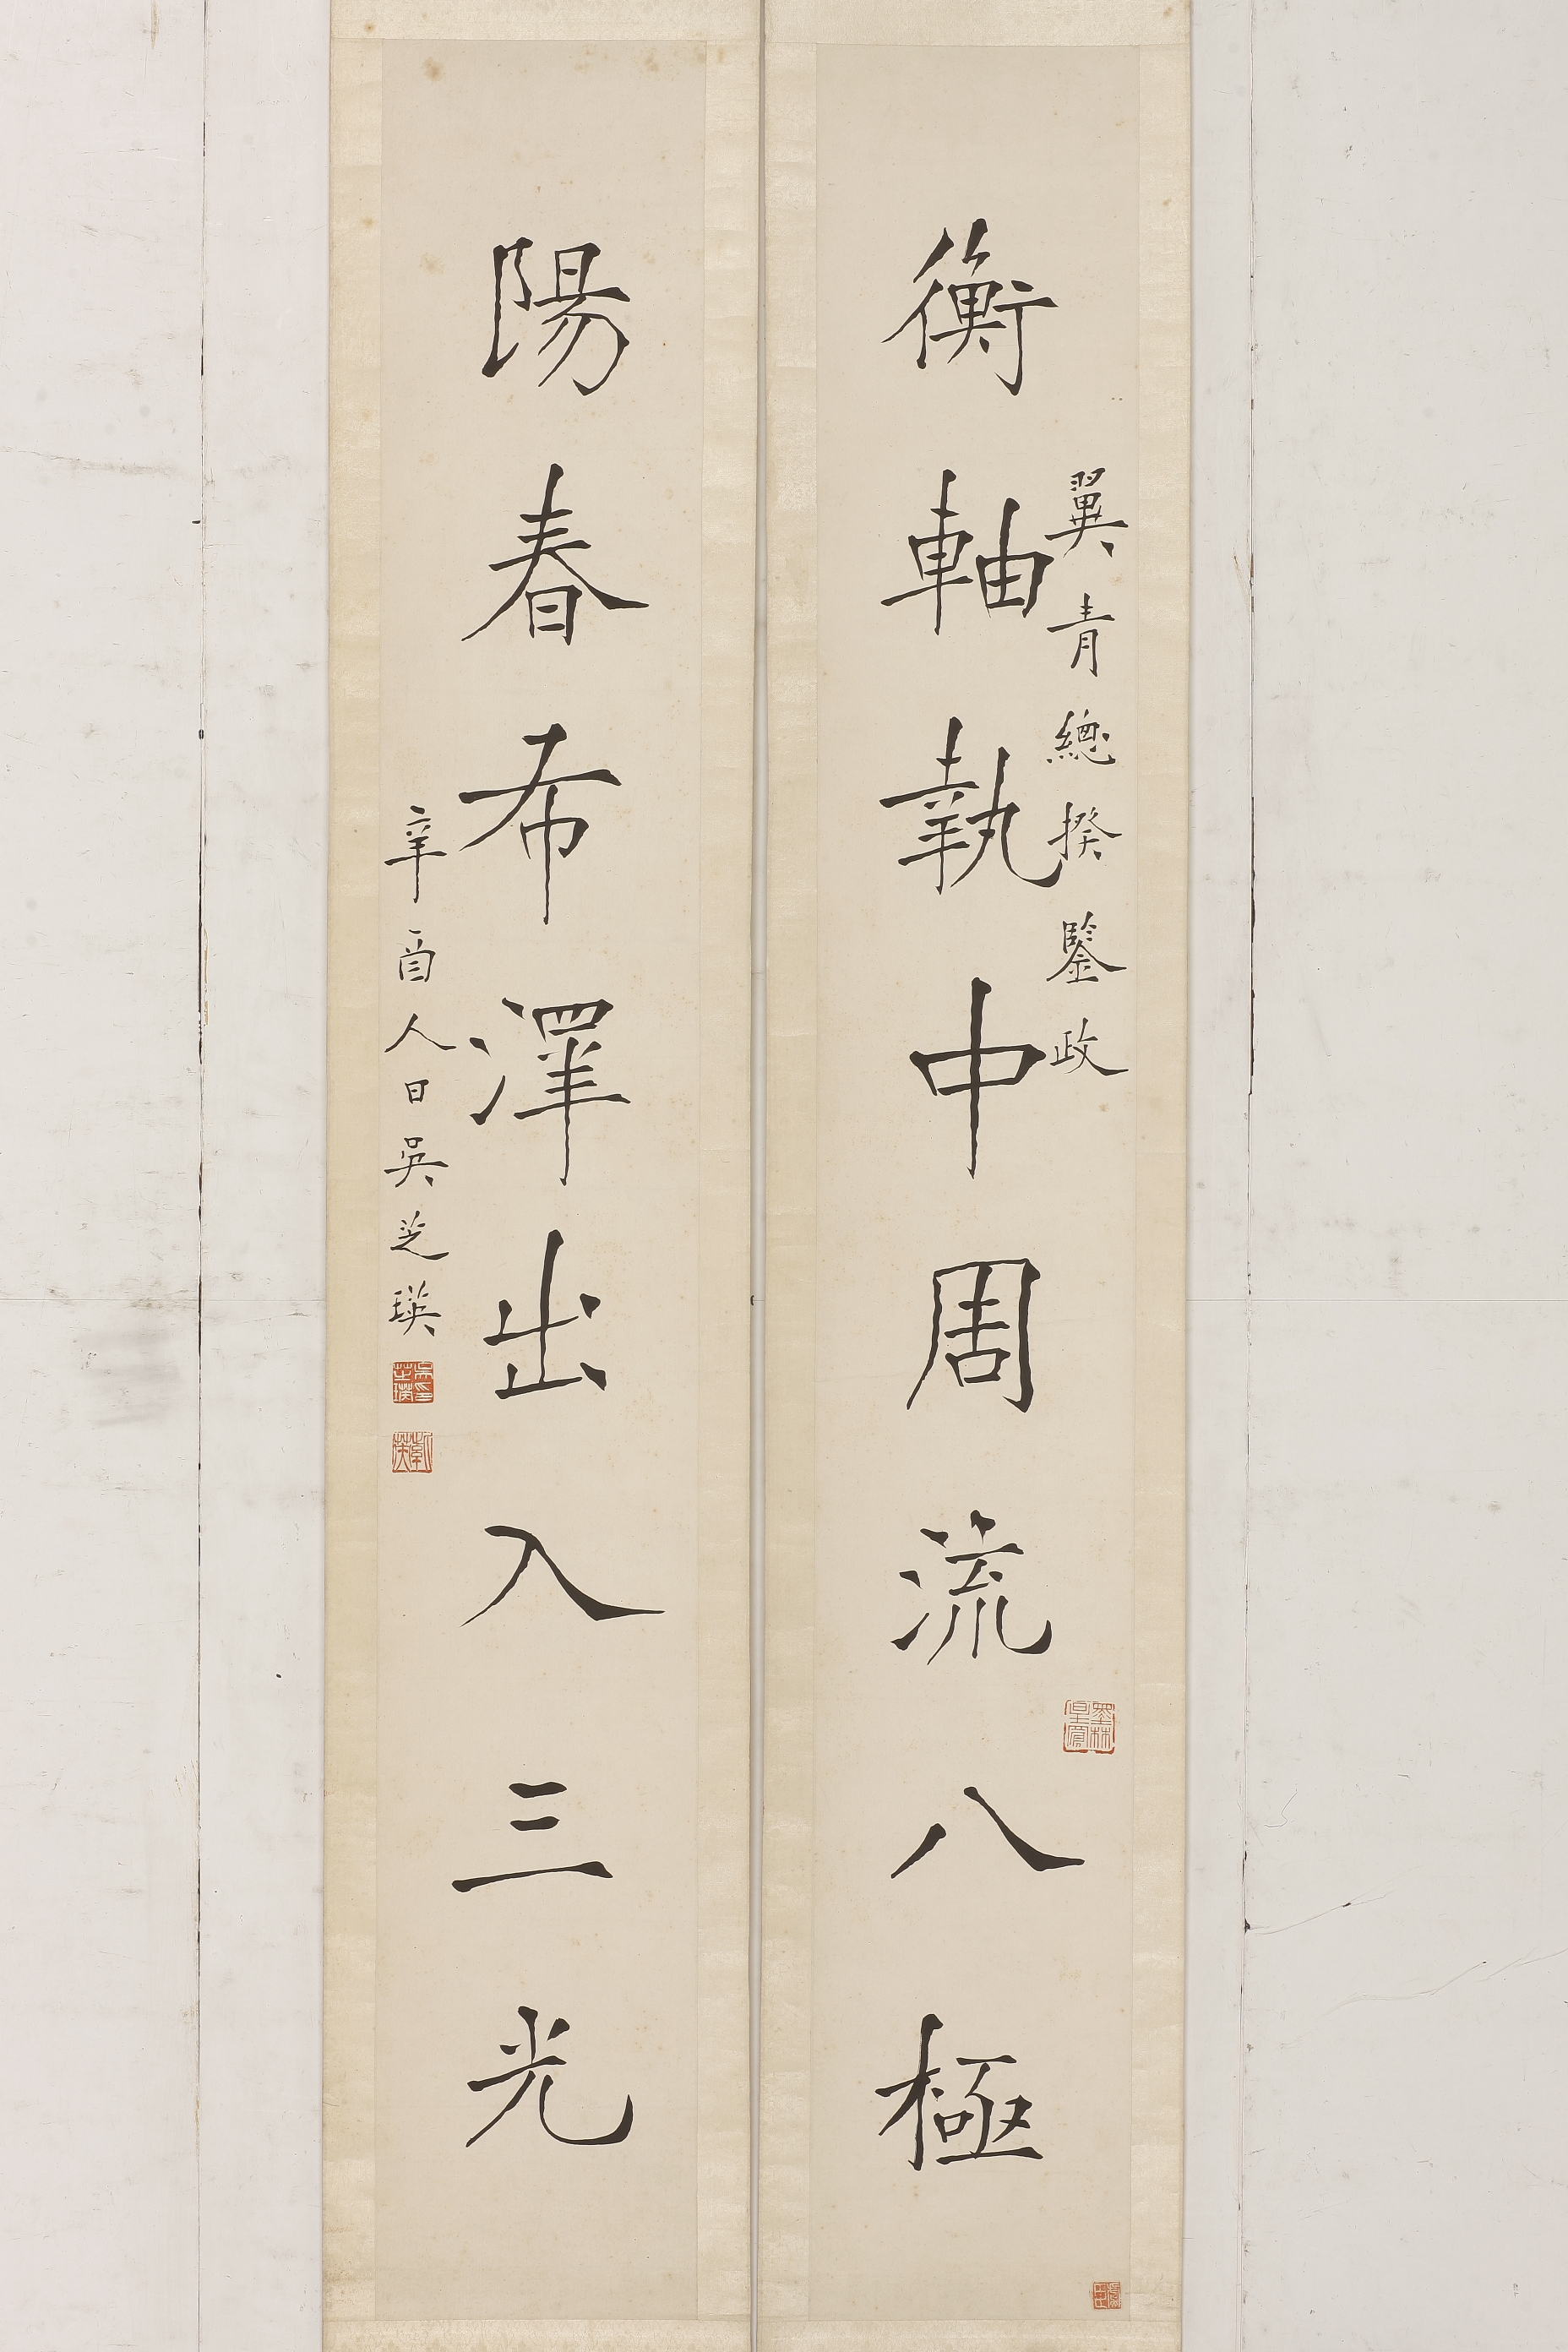 翼青總揆鑒政
衡軸執中周流八極
陽春布澤出入三光
辛酉人日吳芝瑛
吳芝瑛印
紫英